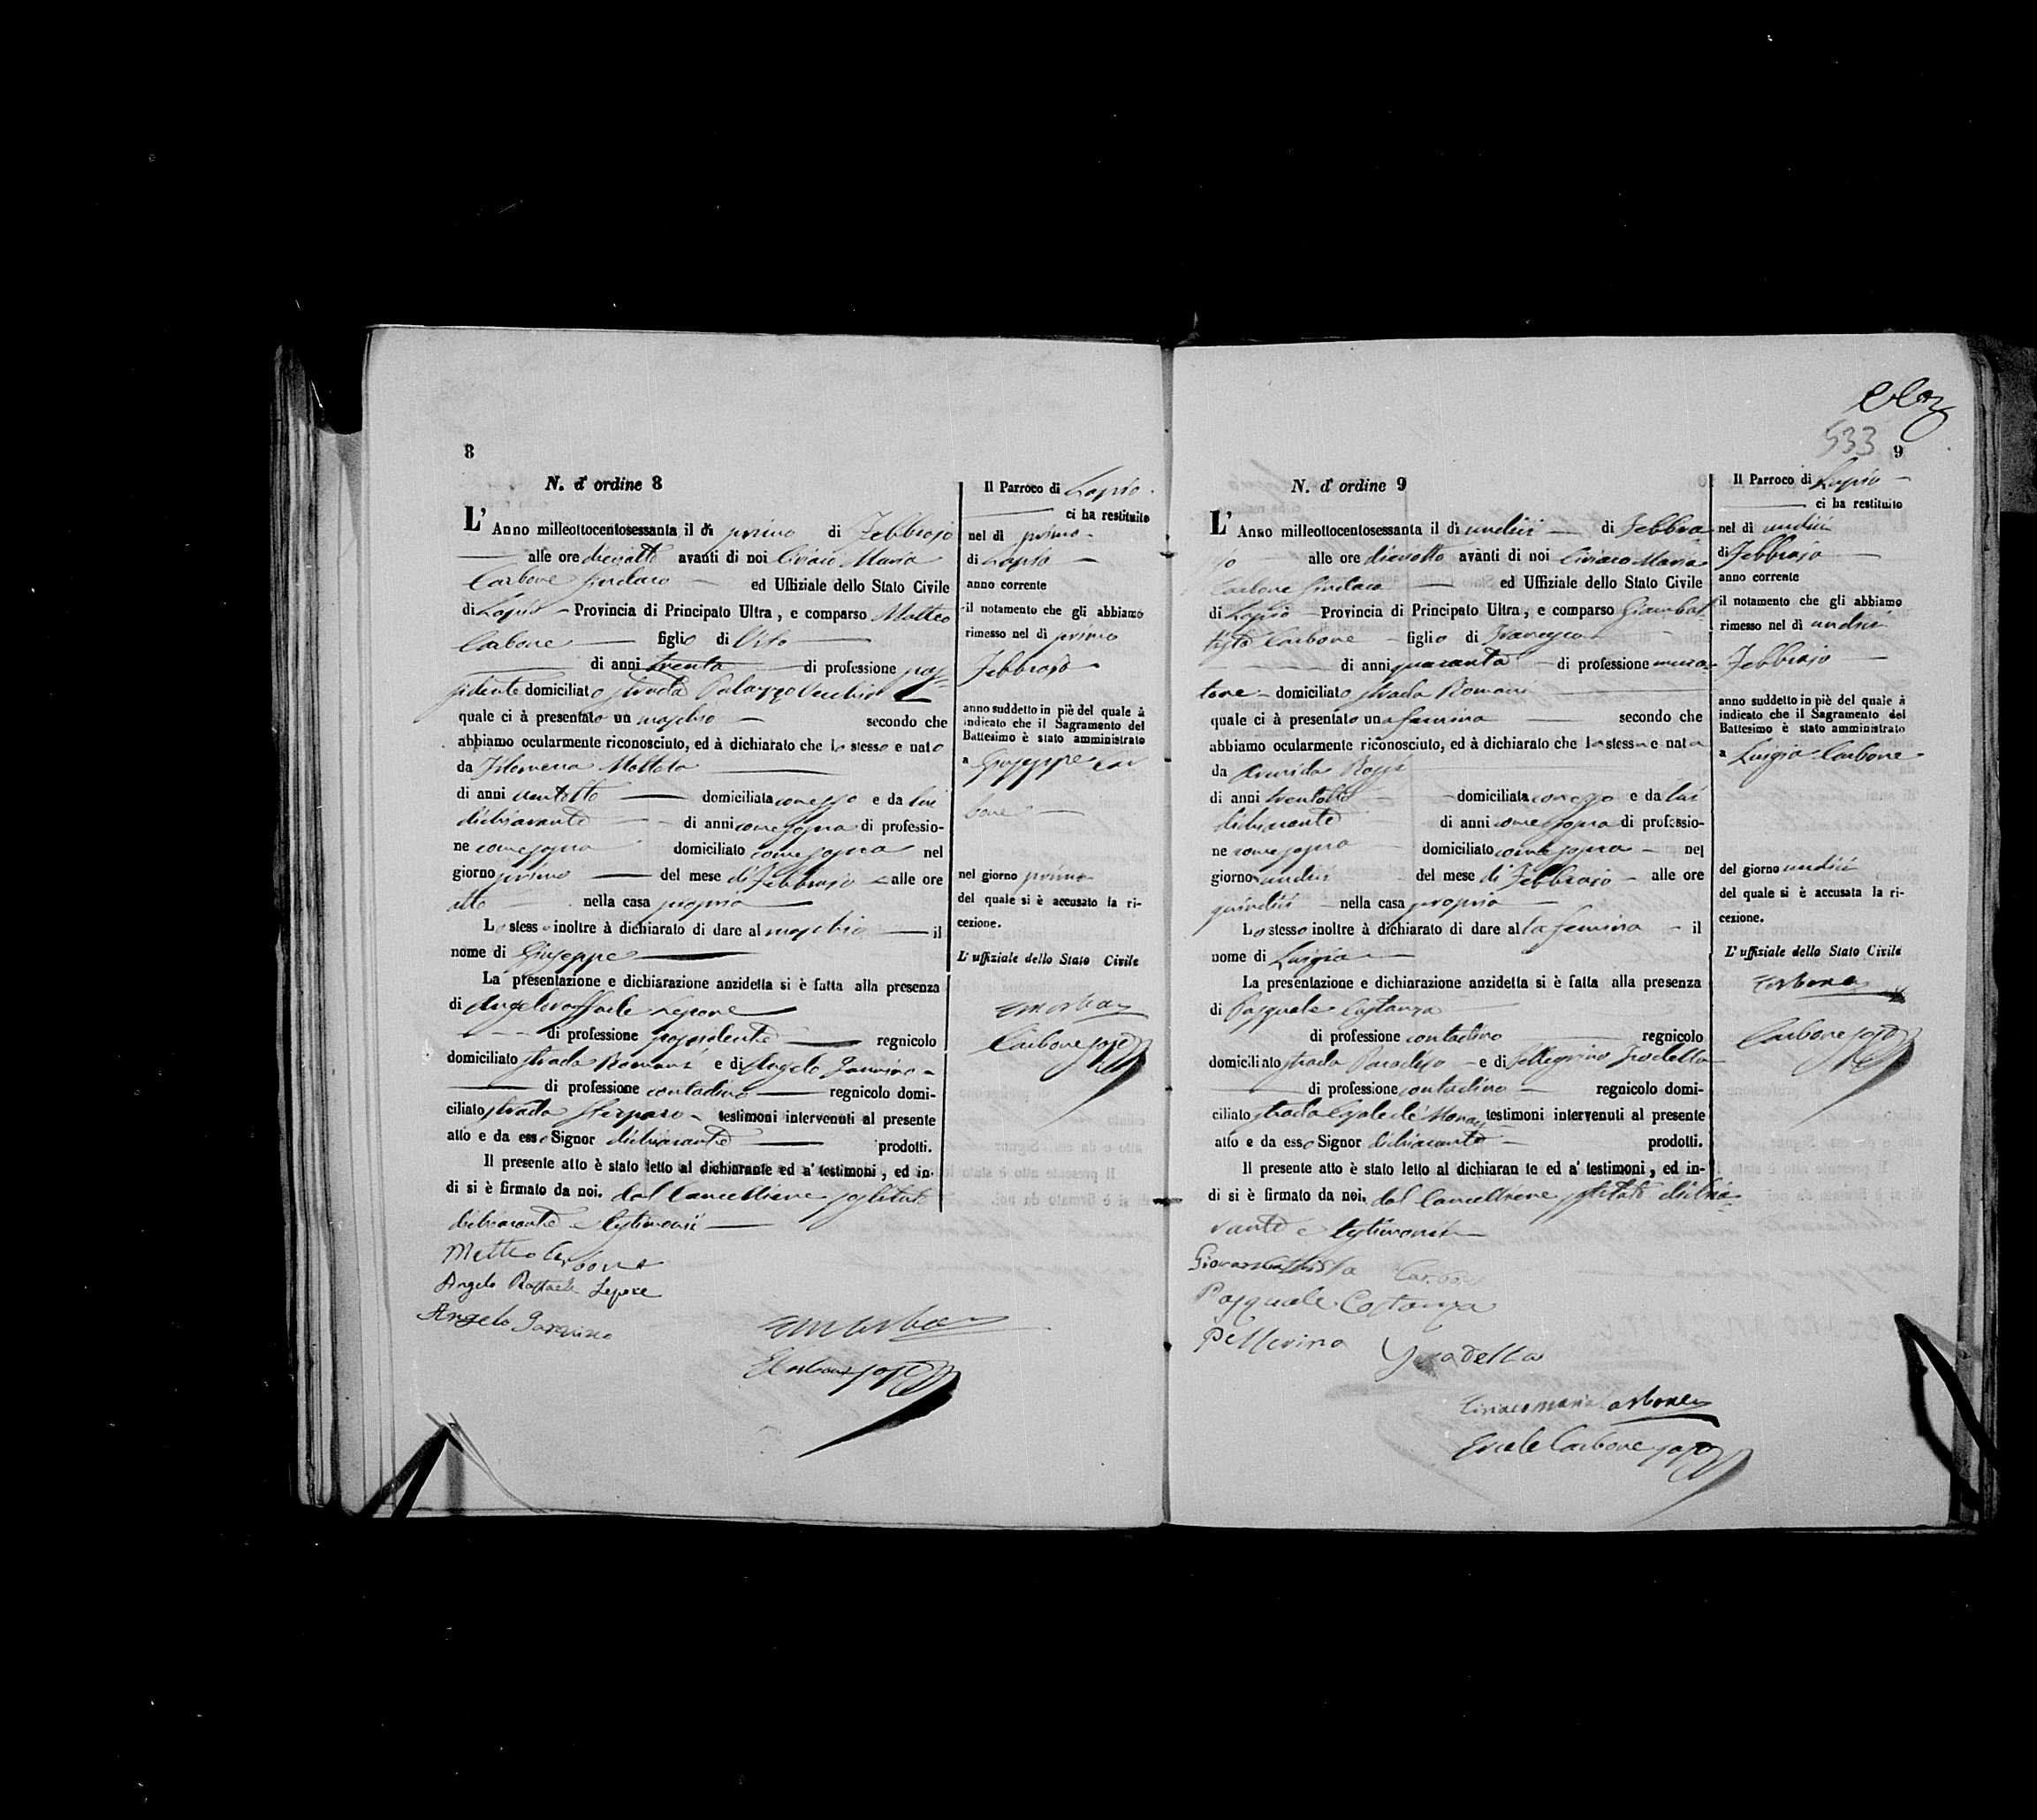 8
N. d' ordine 8
L' Anno milleottocentosessanta il dì primo di Febbrajo
alle ore dieciotto avanti di noi Ciriaco Maria
Carbone Sindaco ed Uffiziale dello Stato Civile
di Lapio Provincia di Principato Ultra, e comparso Matteo
Carbone figlio di Vito
di anni trenta di professione pos-
sidente domiciliato strada Palazzo Vecchio
quale ci à presentato un maschio secondo che
abbiamo ocularmente riconosciuto, ed à dichiarato che lo stesso e nato
da Filomena
di anni ventotto domiciliata come sopra e da lui
dichiarante di anni come sopra di professio-
ne come sopra domiciliato come sopra nel
giorno primo del mese di Febbrajo alle ore
otto nella casa propria
Lo stesso inoltre à dichiarato di dare al maschio il
nome di Giuseppe
La presentazione e dichiarazione anzidetta si è fatta alla presenza
di Angeloraffaele Lepore
di professione possidente regnicolo
domiciliato strada Romani e di Angelo
di professione contadino regnicolo domi-
ciliato strada testimoni intervenuti al presente
atto e da esso Signor dichiarante prodotti.
Il presente atto è stato letto al dichiarante ed a' testimoni, ed in-
di si è firmato da noi, dal Cancelliere sostituto
dichiarante e testimonii
Matteo Carbone
Angelo Raffaele Lepore
Angelo
Il Parroco di Lapio
ci ha restituito
nel dì primo
di Lapio
anno corrente
il notamento che gli abbiamo
rimesso nel dì primo
Febbrajo
anno suddetto in piè del quale à
indicato che il Sagramento del
Battesimo è stato amministrato
a Giuseppe Car
bone
nel giorno primo
del quale si è accusato la ri-
cezione.
L'uffiziale dello Stato Civile
Carbone
533
9
N. d' ordine 9
L' Anno milleottocentosessanta il dì undici di Febbra
jo alle ore dieciotto avanti di noi Ciriaco Maria
Carbone Sindaco ed Uffiziale dello Stato Civile
di Lapio Provincia di Principato Ultra, e comparso Giambat
tista Carbone figlio di Francesco
di anni quaranta di professione mura-
tore domiciliato strada Romani
quale ci à presentato una femina secondo che
abbiamo ocularmente riconosciuto, ed à dichiarato che la stessa e nata
da
di anni trentotto domiciliata come sopra e da lui
dichiarante di anni come sopra di professio-
ne come sopra domiciliato come sopra nel
giorno undici del mese di Febbrajo alle ore
quindici nella casa propria
Lo stesso inoltre à dichiarato di dare al la femina il
nome di Luigia
La presentazione e dichiarazione anzidetta si è fatta alla presenza
di Pasquale Costanza
di professione contadino regnicolo
domiciliato strada Paradiso e di Pellegrino Iradella
di professione contadino regnicolo domi-
ciliato strada testimoni intervenuti al presente
atto e da esso Signor dichiarante prodotti.
Il presente atto è stato letto al dichiaran te ed a' testimoni, ed in-
di si è firmato da noi, dal Cancelliere sostituto dichia-
rante e testimonii
Giovambattista Carbone
Pasquale Costanza
Pellerino
Ciriaco Maria Carbone
Ercole Carbone
Il Parroco di Lapio
ci ha restituito
nel dì undici
di Febbrajo
anno corrente
il notamento che gli abbiamo
rimesso nel dì undici
Febbrajo
anno suddetto in piè del quale à
indicato che il Sagramento del
Battesimo è stato amministrato
a Luigia Carbone
del giorno undici
del quale si è accusata la ri-
cezione.
L'uffiziale dello Stato Civile
Carbone
Carbone